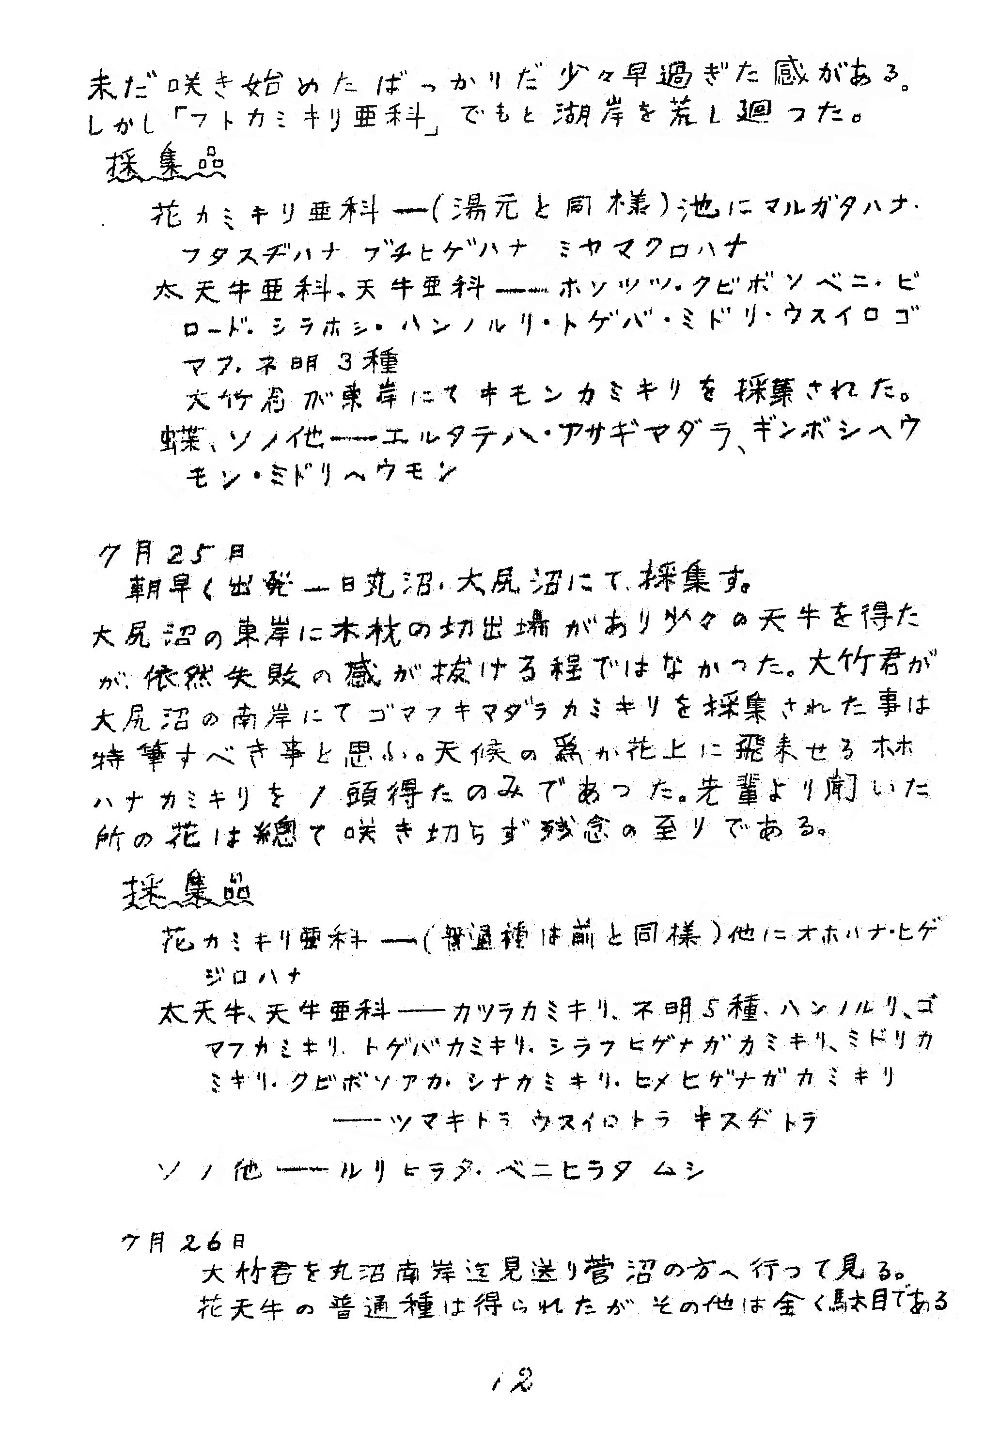 未だ咲き始めたばっかりだ少々早過ぎた感がある。
しかし「フトカミキリ亜科」でもと湖岸を荒し廻つた。
採集品
花カミキリ亜科―(湯元と同様)池にマルガタハナ・
フタスヂハナ ブチヒゲハナ ミヤマクロハナ
太天牛亜科、天牛亜科――ホソツツ・クビボソベニ・ビ
ロード・シラホシ・ハンノルリ・トゲバ・ミドリ・ウスイロゴ
マフ・ネ明3種
大竹君が東岸にてキモンカミキリを採集された。
蝶、ソノ他――エルタテハ・アサギマダラ、ギンボシヘウ
モン・ミドリヘウモン
7月25日
朝早く出発一日丸沼・大尻沼にて採集す。
大尻沼の東岸に木材の切出場があり少々の天牛を得た
が、依然失敗の感が抜ける程ではなかった。大竹君が
大尻沼の南岸にてゴマフキマダラカミキリを採集された事は
特筆すべき事と思ふ。天候の為か花上に飛来せるホホ
ハナカミキリを1頭得たのみであつた。先輩より聞いた
所の花は總て咲き切らず残念の至りである。
採集品
花カミキリ亜科―(普通種は前と同様)他にオホハナ・ヒゲ
ジロハナ
太天牛、天牛亜科――カツラカミキリ、ネ明5種、ハンノルリ、ゴ
マフカミキリ、トゲバカミキリ、シラフヒゲナガカミキリ、ミドリカ
ミキリ・クビボソアカ・シナカミキリ・ヒメヒゲナガカミキリ
――ツマキトラ ウスイロトラ キスヂトラ
ソノ他――ルリヒラタ・ベニヒラタムシ
7月26日
大竹君を丸沼南岸迄見送り菅沼の方へ行って見る。
花天牛の普通種は得られたがその他は全く駄目である
12